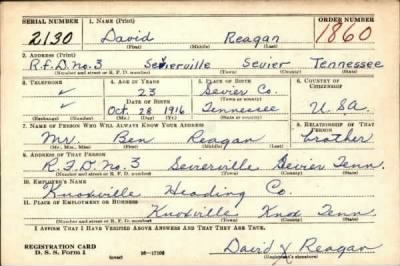 SERIAL NUMBER 1. NAME (Print) ORDER NUMBER
2130 David Reagan 1860
(First) (Middle) (Last)
2. ADDRESS (Print)
R.F.D. No. 3 Sevierville Sevier Tennessee
(Number and street or R. F. D. number) (Town) (County) (State)
3. TELEPHONE 4. AGE IN YEARS 5. PLACE OF BIRTH 6. COUNTRY OF CITIZENSHIP
✓ 23 Sevier Co.
DATE OF BIRTH (Town or county)
✓ Oct 28 1916 Tennessee U.S.A.
(Exchange) (Number) (Mo.) (Day) (Yr.) (State or country)
7. NAME OF PERSON WHO WILL ALWAYS KNOW YOUR ADDRESS 8. RELATIONSHIP OF THAT PERSON
Mr. Ben Reagan brother
(Mr., Mrs., Miss) (First) (Middle) (Last)
9. ADDRESS OF THAT PERSON
R.F.D. No. 3 Seiverville Sevier Tenn.
(Number and street or R. F. D. number) (Town) (County) (State)
10. EMPLOYER'S NAME
Knoxville Heading Co.
11. PLACE OF EMPLOYMENT OR BUSINESS
Knoxville Knox Tenn.
(Number and street or R. F. D. number) (Town) (County) (State)
I AFFIRM THAT I HAVE VERIFIED ABOVE ANSWERS AND THAT THEY ARE TRUE.
REGISTRATION CARD
D. S. S. Form 1 (over) 16—17105 David X Reagan
(Registrant's signature)